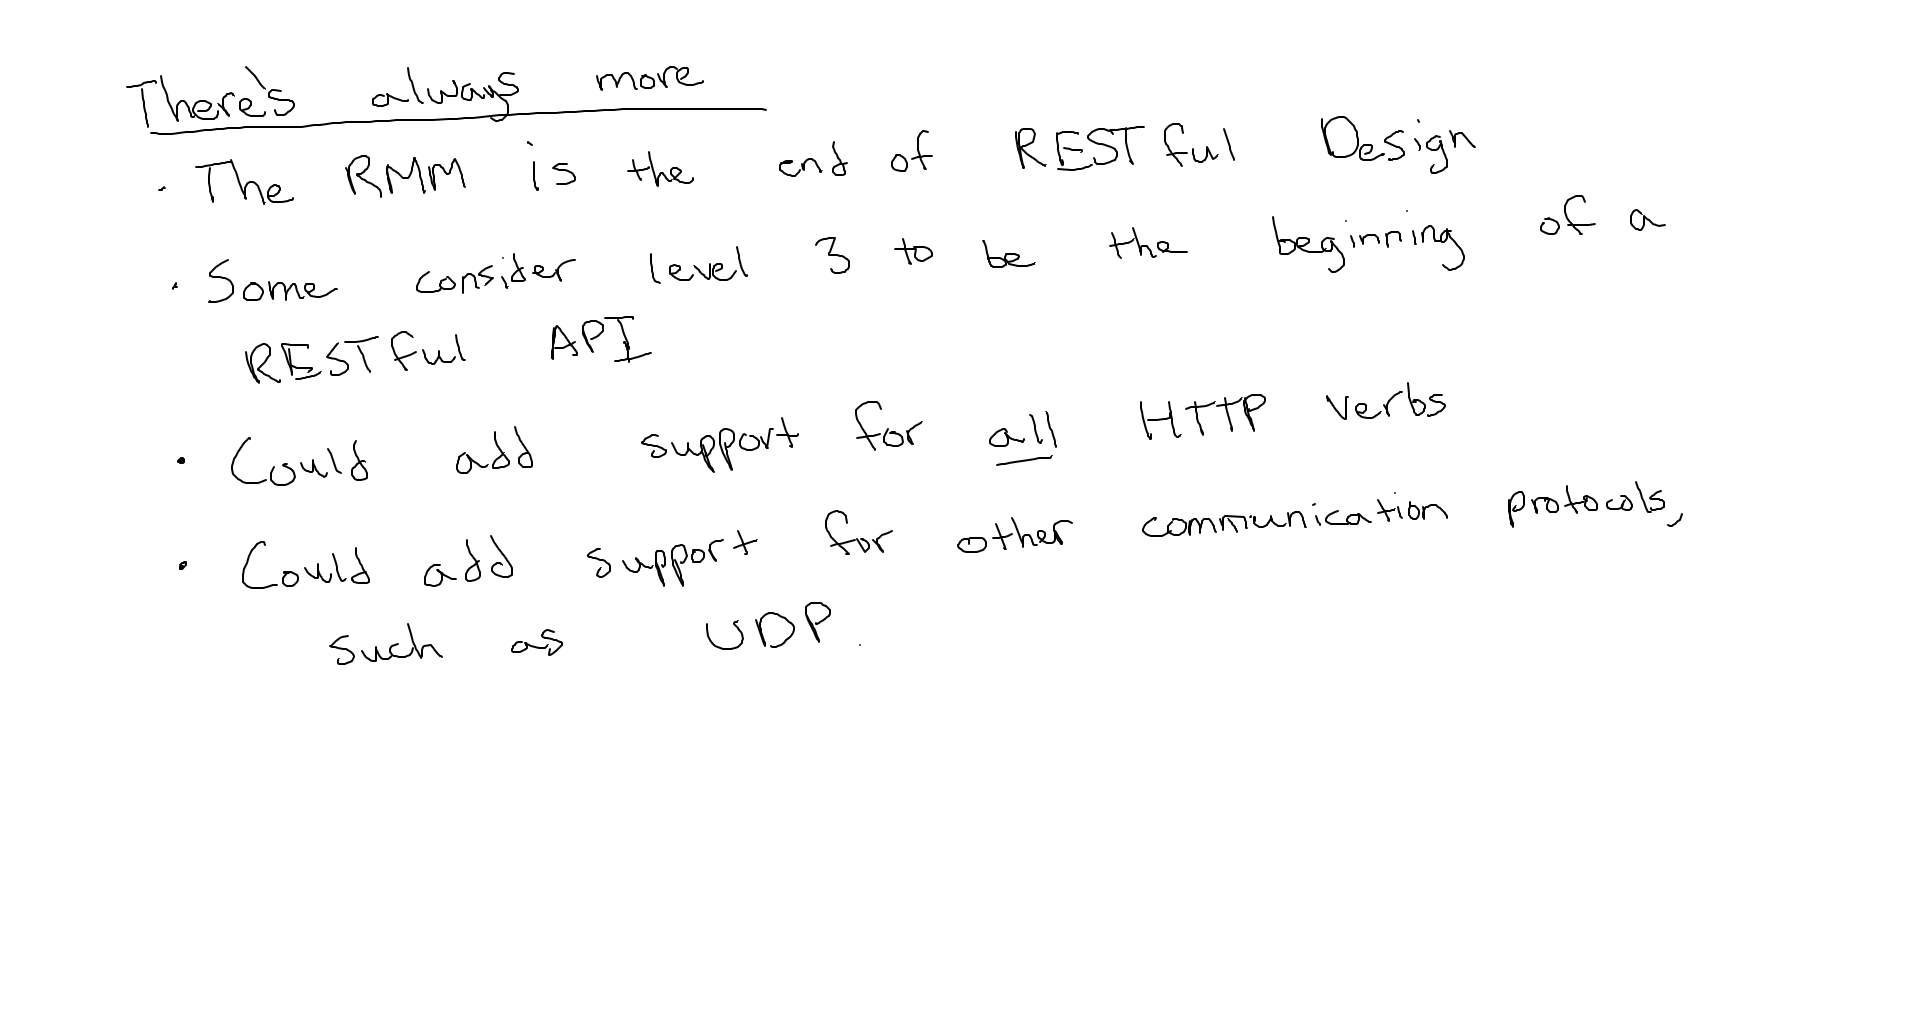 There's always more
· The RMM is the end of RESTful Design
· Some consider level 3 to be the beginning of a
RESTful API
· Could add support for all HTTP verbs
· Could add support for other communication protocols,
such as UDP.